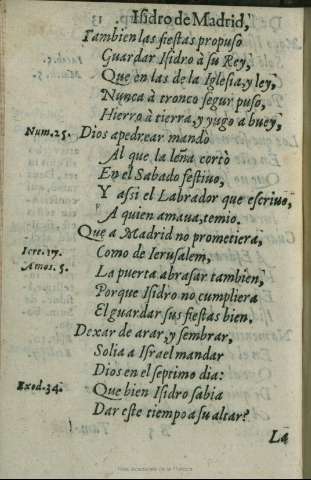 Isidro de Madrid,
Tambien las fiestas propuso
Guardar Isidro à su Rey,
Que en las de la Iglesia, y ley,
Nunca à tronco segur puso,
Hierro à tierra, y yugo a buey,
Num. 25. Dios apedrear mandò
Al que la leña cortò
En el Sabado festiuo,
Y assi el Labrador que escriuo,
A quien amaua, temio.
Que a Madrid no prometiera,
Iere. 17. Como de Ierusalem,
Amos. 5. La puerta abrasar tambien,
Porque Isidro no cumpliera
El guardar sus fiestas bien.
Dexar de arar, y sembrar,
Solia a Israel mandar
Dios en el septimo dia:
Exod. 34. Que bien Isidro sabia
Dar este tiempo a su altar?
La